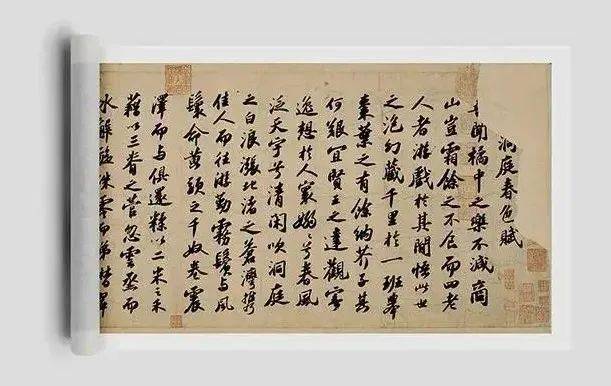 洞庭春色賦
聞橘中之樂不減商
山豈霜餘之不食而四老
人者游戲於其間悟此世
之泡幻藏千里於一班舉
棗葉之有餘納芥子其
何艱宜賢王之達觀寄
逸想於人寰嫋嫋兮春風
泛天宇兮清閑吹洞庭
之白浪漲北渚之蒼灣攜
佳人而往遊勤霧鬢与風
鬟命黃頭之千奴卷震
澤而与俱還糅以二米之禾
藉以三脊之菅忽雲烝而
冰解旋珠零而涕潸翠